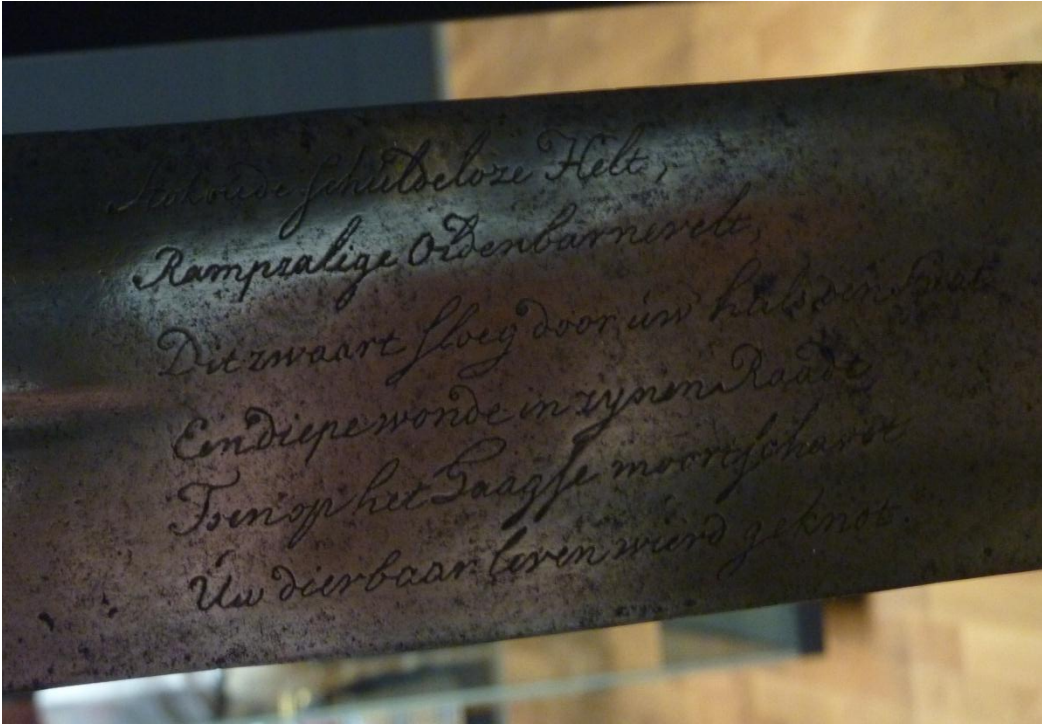 Stokoude schuldeloze Helt,
Rampzalige Oldenbarnevelt,
Dit zwaart sloeg door uw hals den Staat
Een diepe wonde in zynen Raadt
Toen op het Haagse moortschavot
Uw dierbaar leven wierd geknot.